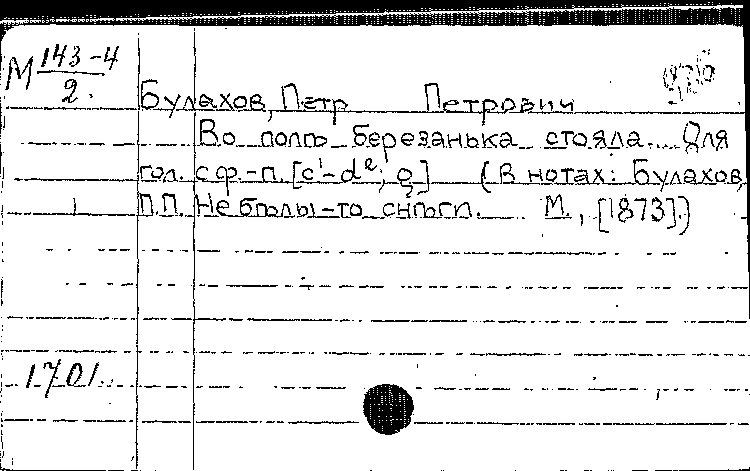 М 143-4
2.
Булахов, Петр Петрович
Во поле березанька стояла... Для
гол. с ф.-п. [c¹-d²; g] (В нотах: Булахов,
П.П. Не белы-то снеги. М., [1873].)
1701.